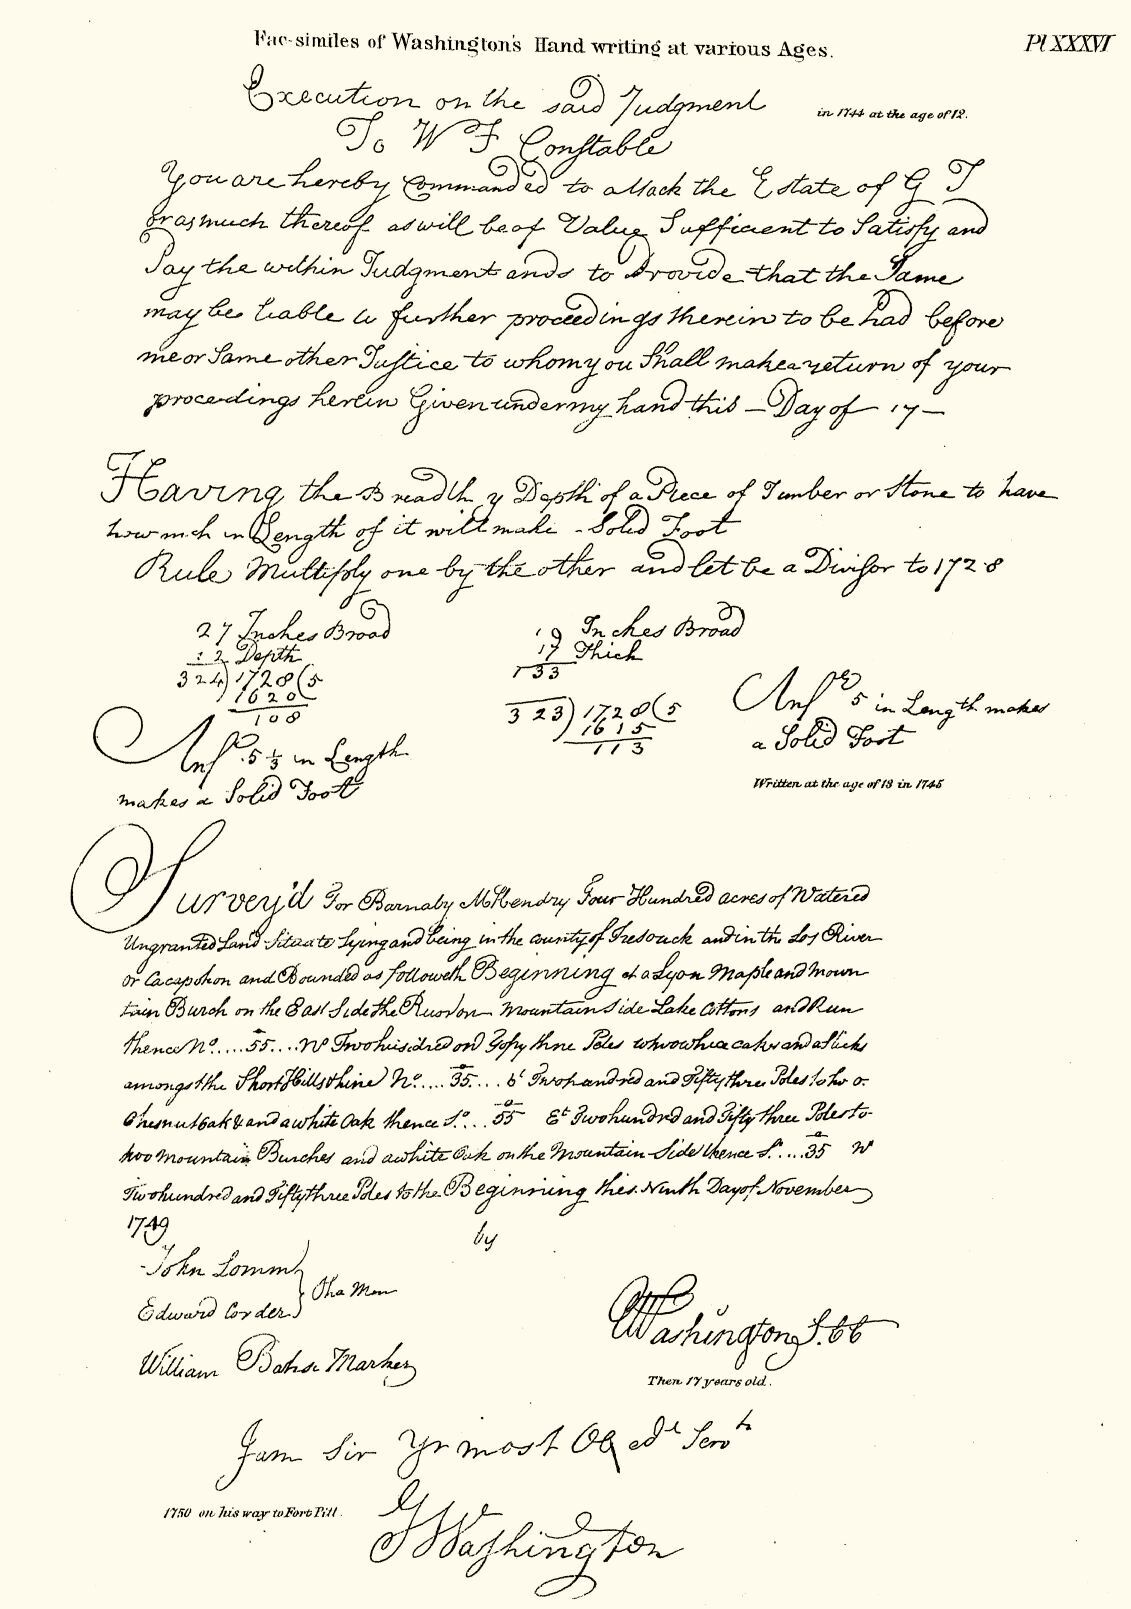 Fac-similes of Washington's Hand writing at various Ages.
Pl XXXVI
Execution on the said Judgment
in 1744 at the age of 12.
To W F Constable
You are hereby Command'ed to attack the Estate of G T
or as much thereof as will be of Value Sufficient to Satisfy and
Pay the within Judgment and to Provide that the Same
may be liable to further proceedings therein to be had before
me or Some other Justice to whom you Shall make a return of your
proceedings herein Given under my hand this — Day of 17—
Having the Breadth y Depth of a Piece of Timber or Stone to have
how mch in Length of it will make - Solid Foot
Rule Multiply one by the other and let be a Divisor to 1728
27 Inches Broad
12 Depth
324) 1728 (5
1620
108
Ansr 5 1/3 in Length
makes a Solid Foot
19 Inches Broad
17 Thick
133
323) 1728 (5
1615
113
Ansr 5 in Length makes
a Solid Foot
Written at the age of 13 in 1745
Survey'd For Barnaby McHendry Four Hundred acres of Watered
Ungranted Land Situate Lying and being in the county of and in the Los River
or Cacapohon and Bounded as followeth Beginning at a Lyon Maple and Moun
tain Burch on the East Side the Mountain Side Lake Cottons and Run
thence No.....55....W Two hundred and Fifty three Poles
amongst the Short Hills thence No....35.... Et Two hundred and Fifty three Poles to
Chesnut Oak & and a white Oak thence So....55 Et Two hundred and Fifty three Poles to
two Mountain Burches and a white Oak on the Mountain Side thence So....35 W
Two hundred and Fifty three Poles to the Beginning this Ninth Day of November
1749
by
John Lomm
Edward Corder
Cha Men
William Marker
Washington S.CC
Then 17 years old.
I am Sir Yr most Obedt Servt
1750 on his way to Fort Pitt.
GWashington